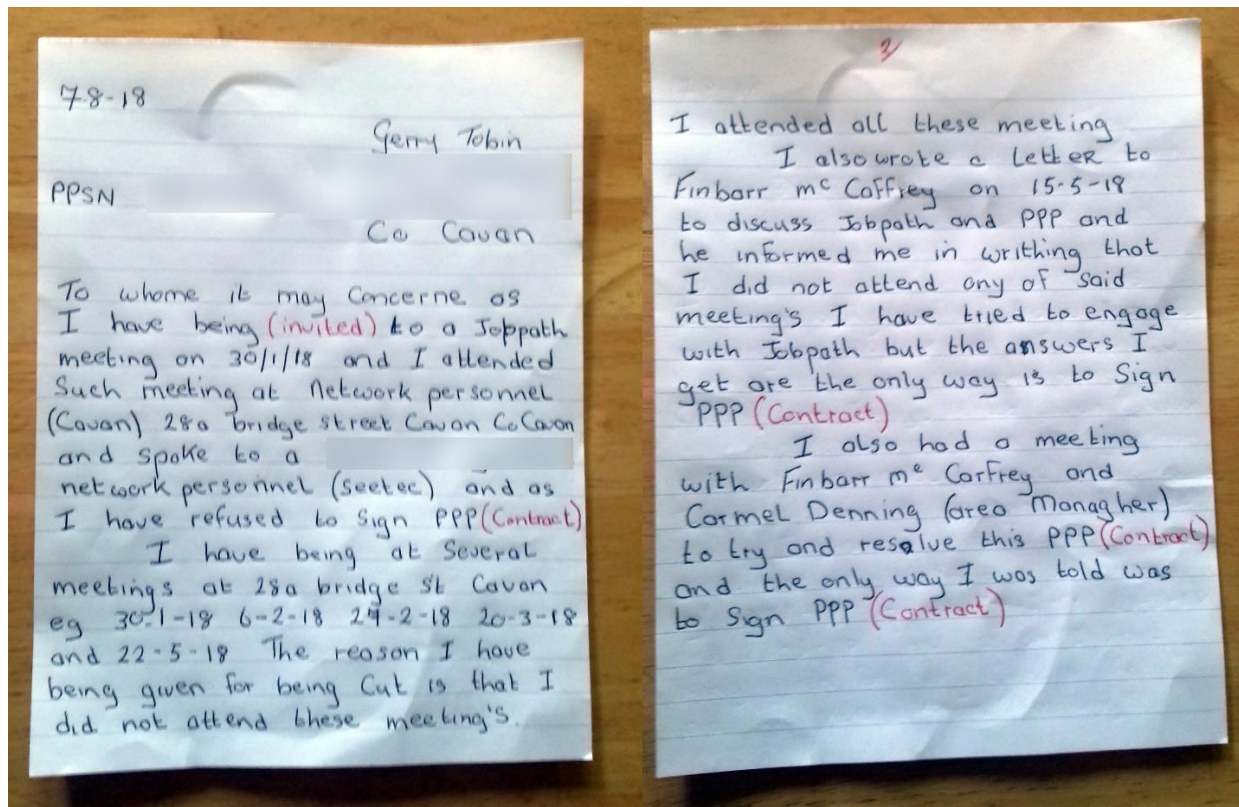 7-8-18
Gerry Tobin
PPSN
Co Cavan
To whome it may Concerne as
I have being (invited) to a Joppath
meeting on 30/1/18 and I attended
Such meeting at network personnel
(Cavan) 28a bridge street Cavan Co Cavan
and spoke to a
network personnel (seetec) and as
I have refused to Sign PPP (Contract)
I have being at Several
meetings at 28a bridge St Cavan
eg 30-1-18 6-2-18 27-2-18 20-3-18
and 22-5-18 The reason I have
being given for being Cut is that I
did not attend these meeting's.
2/
I attended all these meeting
I also wrote a LettER to
Finbarr mc Caffrey on 15-5-18
to discuss Jobpath and PPP and
he informed me in writhing that
I did not attend any of said
meeting's I have tried to engage
with Jobpath but the answers I
get are the only way is to Sign
PPP (Contract)
I also had a meeting
with Finbarr mc Carfrey and
Carmel Denning (area Managher)
to try and resolve this PPP (Contract)
and the only way I was told was
to Sign PPP (Contract)